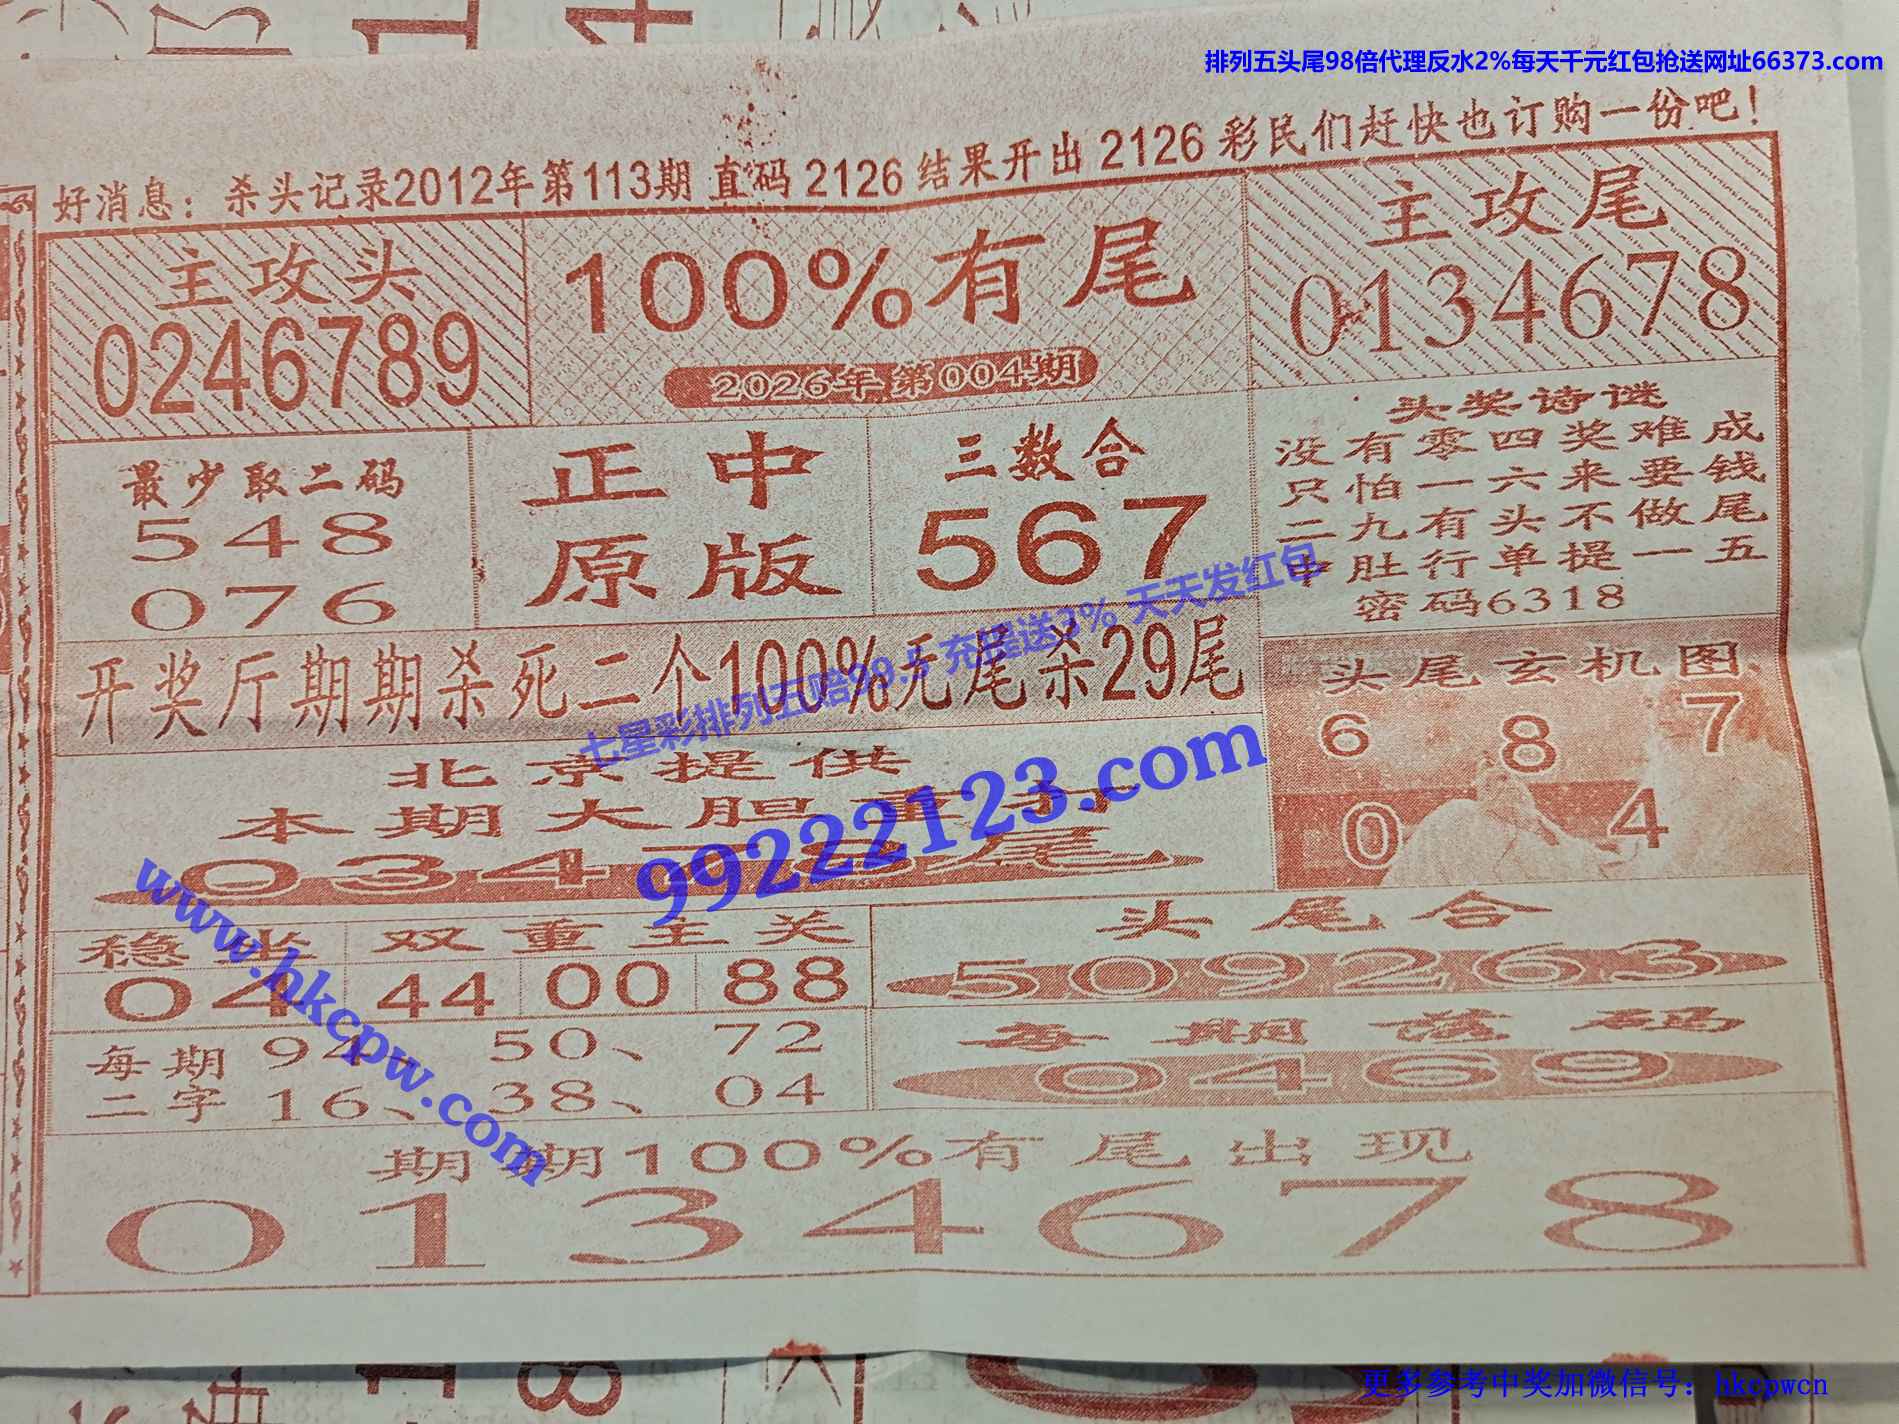 排列五头尾98倍代理反水2%每天千元红包抢送网址66373.com
好消息：杀头记录2012年第113期 直码 2126 结果开出 2126 彩民们赶快也订购一份吧！
主攻头
0246789
100%有尾
2026年第004期
主攻尾
0134678
最少取二码
548
076
正中
原版
三数合
567
头奖诗谜
没有零四奖难成
只怕一六来要钱
二九有头不做尾
中肚行单提一五
密码6318
开奖厅期期杀死二个100%无尾杀29尾
七星彩排列五赔99.5 充值送3% 天天发红包
头尾玄机图
6 8 7
0 4
北京提供
本期大胆重打
034 尾
99222123.com
www.hkcpw.com
稳坐 双重主关
04 44 00 88
头尾合
509263
每期 94、50、72
二字 16、38、04
每期落码
0469
期期100%有尾出现
0134678
更多参考中奖加微信号：hkcpwcn